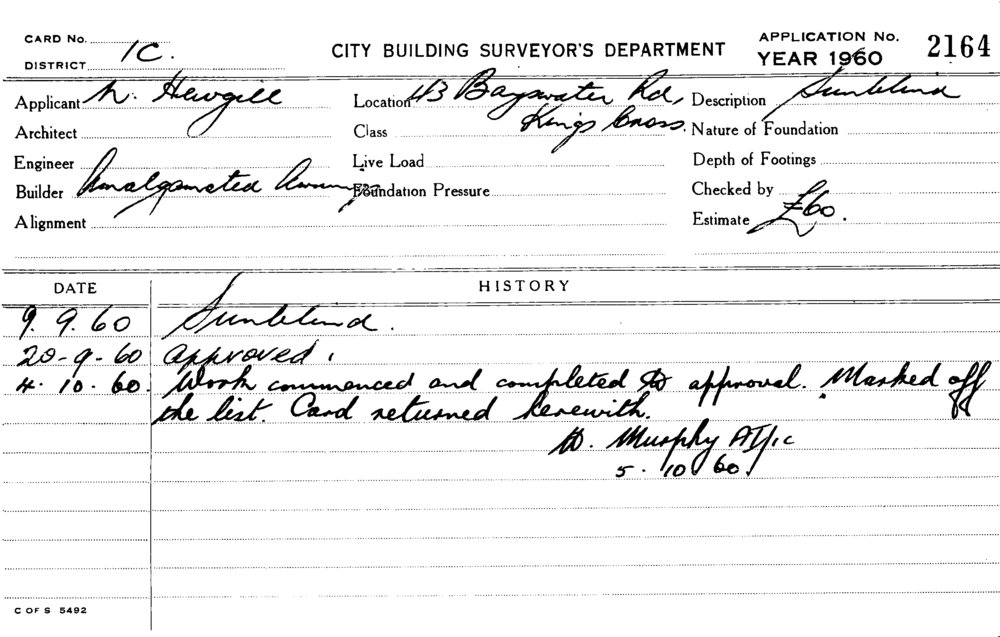 CARD No.
DISTRICT 1C.
CITY BUILDING SURVEYOR'S DEPARTMENT
APPLICATION No. 2164
YEAR 1960
Applicant N. Hewgill
Location 43 Bayswater Rd,
Kings Cross.
Description Sunblind
Architect
Class
Nature of Foundation
Engineer
Live Load
Depth of Footings
Builder Amalgamated Awnings
Foundation Pressure
Checked by
Alignment
Estimate £60.
DATE HISTORY
9. 9. 60 Sunblind.
20-9-60 approved.
4. 10. 60. Work commenced and completed to approval. Marked off
the list. Card returned herewith.
D. Murphy
5. 10. 60.
C OF S 5492